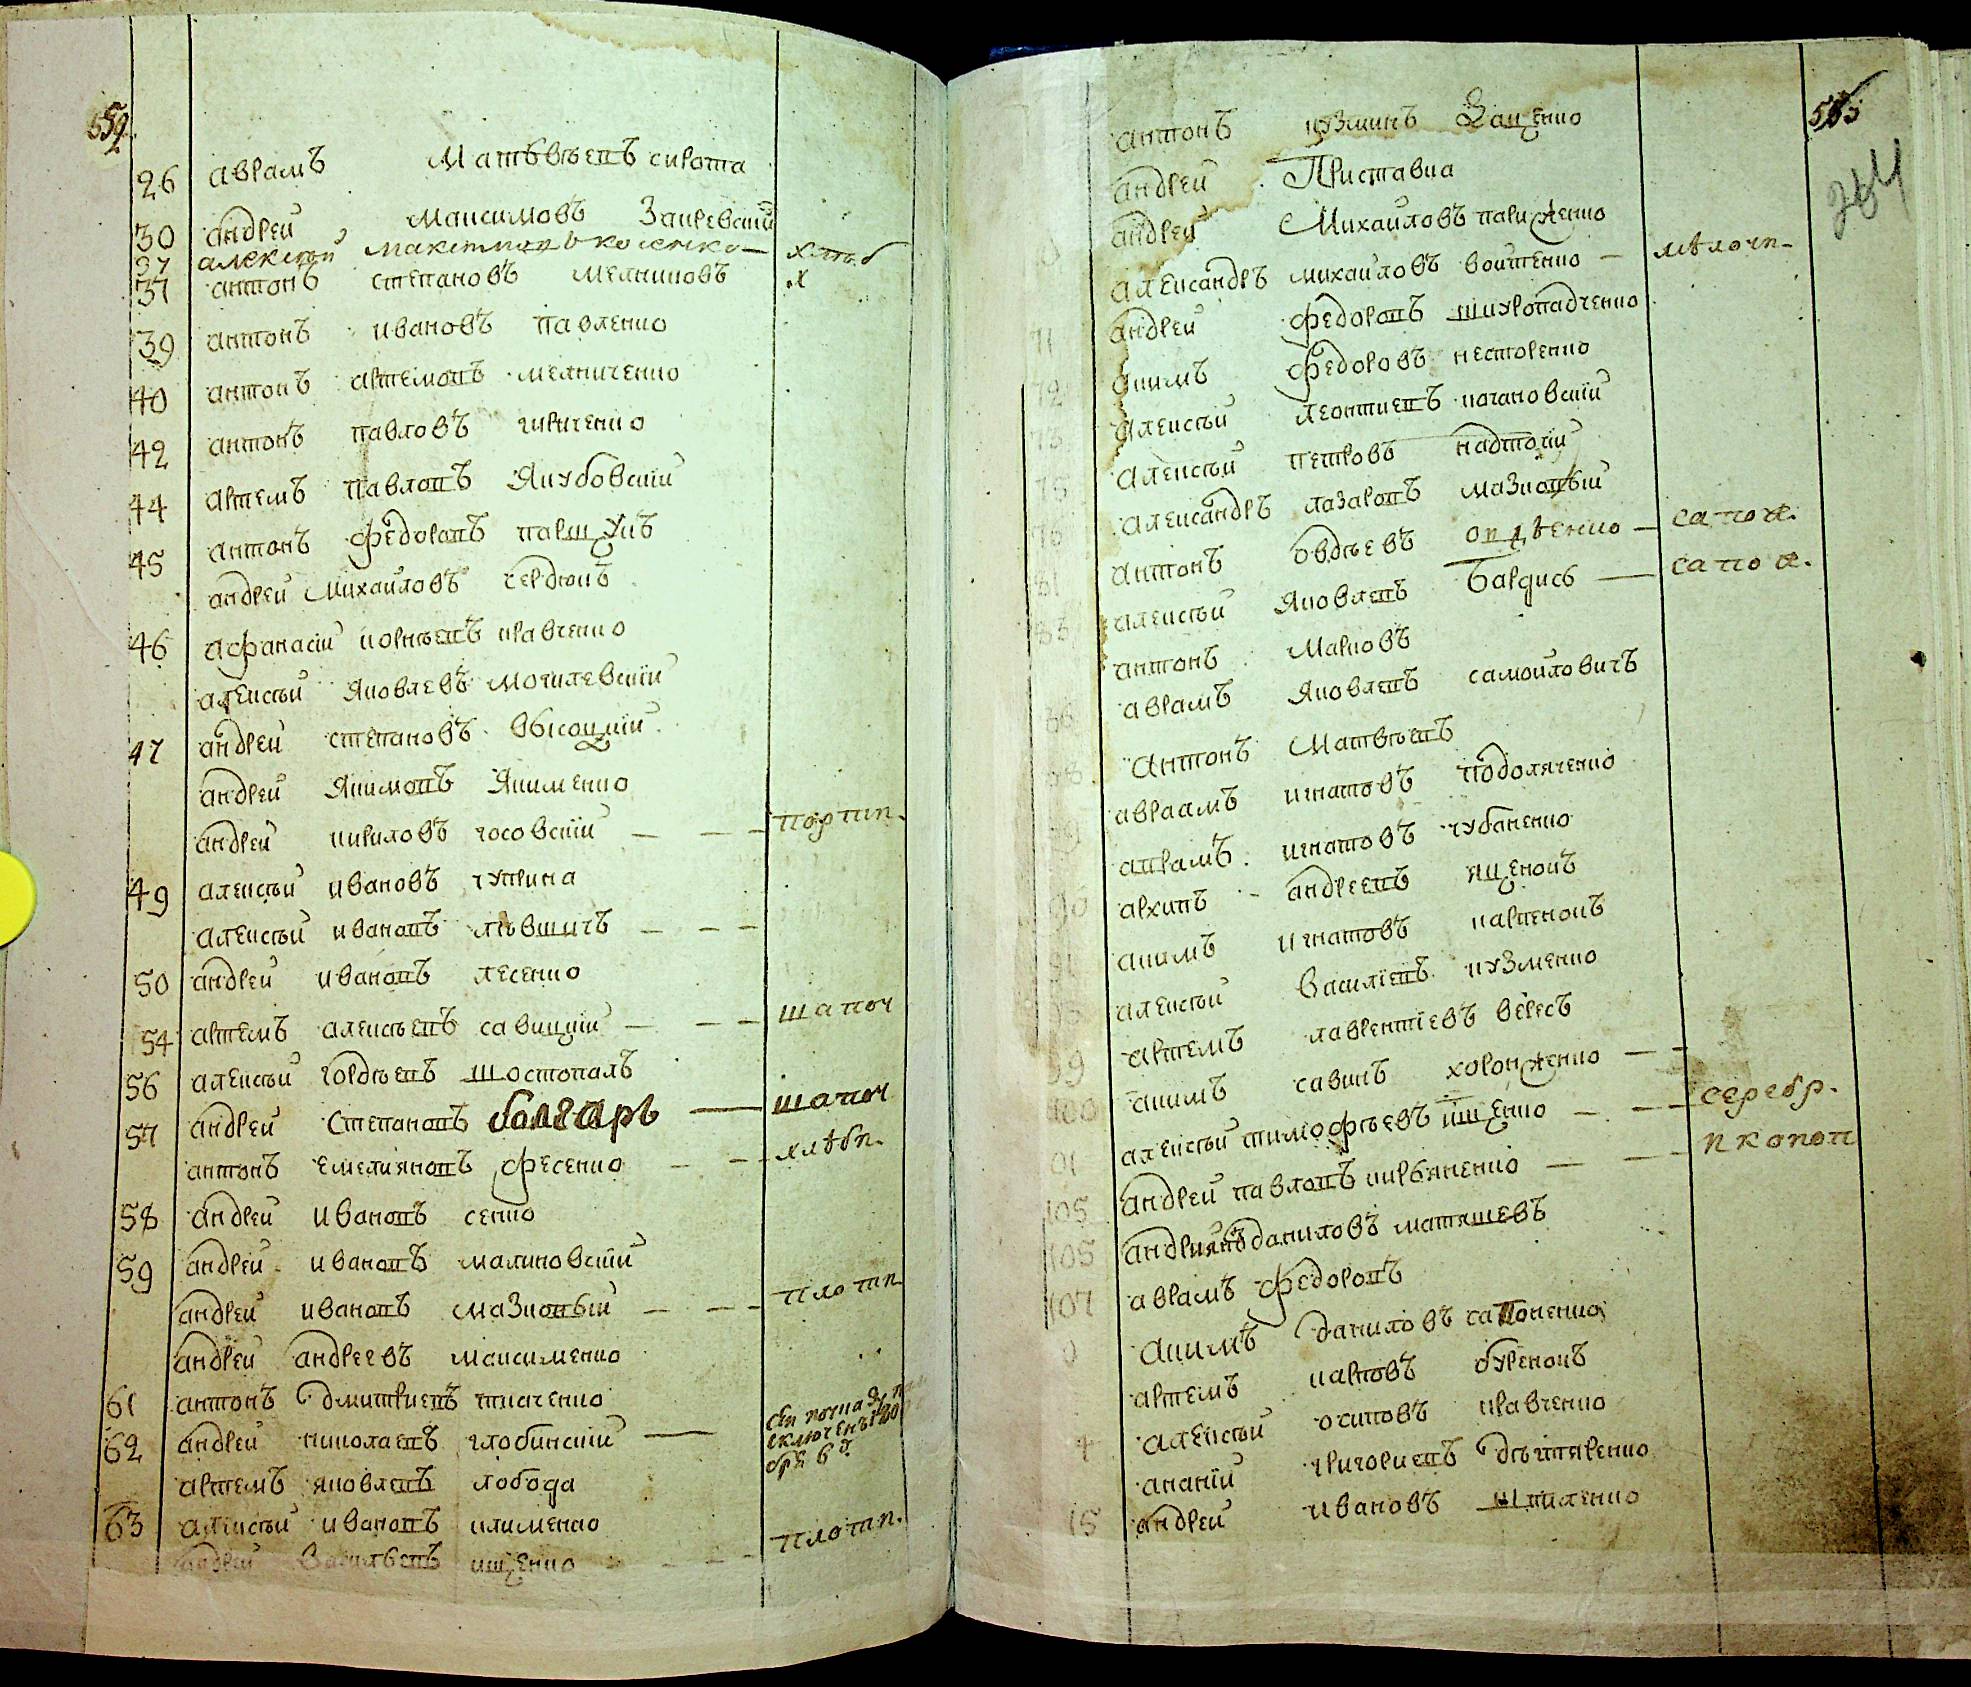 559
26 аврамъ Матъвѣевъ сирота
30 андрей максимовъ Закревский
37 алексѣй максимовъ коленко — хлѣб
37 антонъ степановъ мелниковъ х
39 антонъ ивановъ павленко
40 антонъ артемовъ мелниченко
42 антонъ павловъ киргченко
44 артемъ павловъ Якубовскій
45 антонъ федоровъ паршукъ
андрей михайловъ чердюкъ
46 афанасій корнѣевъ кравченко
алексѣй яковлевъ могилевскій
47 андрей степановъ высоцкій
андрей Якимовъ Якименко
андрей кириловъ госовскій — — — портн.
49 алексѣй ивановъ чуприна
алексѣй ивановъ лѣвшичъ — — —
50 андрей ивановъ лесенко
54 артемъ алексѣевъ савицкій — — — шапоч
56 алексѣй гордѣевъ шостопалъ
57 андрей степановъ болгаръ — шапоч
антонъ емелияновъ фесенко — — хлѣбн.
58 андрей ивановъ сенко
59 андрей ивановъ малиновскій
андрей ивановъ мазновый — — — плотн
андрей андреевъ максименко
61 антонъ дмитриевъ ткаченко
62 андрей николаевъ глобинскій —
артемъ яковлевъ лобода
63 алексѣй ивановъ клименко
андрей васильевъ ищенко — — — плотн.
565
264
антонъ кузминъ Ващенко
андрей Приставка
андрей Михайловъ париженко
александръ михайловъ войтенко — мѣлочн-
71 андрей федоровъ шкуропадченко
72 акимъ федоровъ несторенко
73 алексѣй леонтиевъ кочановскій
75 алексѣй петровъ надточій
76 александръ лазаровъ мазновый
81 антонъ овдѣевъ — сапож.
83 алексѣй яковлевъ бардисъ — сапож.
антонъ марковъ
86 аврамъ яковлевъ самойловичъ
88 антонъ матвѣевъ
авраамъ игнатовъ подоляченко
аврамъ игнатовъ чубаненко
90 архипъ андреевъ ященокъ
91 акимъ игнатовъ карпенокъ
алексѣй василіевъ кузменко
99 артемъ лаврентіевъ велесъ
100 акимъ савинъ хоронженко — —
01 алексѣй тимофѣевъ ищенко — — — серебр.
105 андрей павловъ кирьяненко — — иконоп
105 андриянъ даниловъ матяшевъ
107 аврамъ федоровъ
акимъ даниловъ сапоненко
артемъ карповъ буренокъ
алексѣй осиповъ кравченко
ананій григориевъ дѣгтяренко
15 андрей ивановъ шпиленко